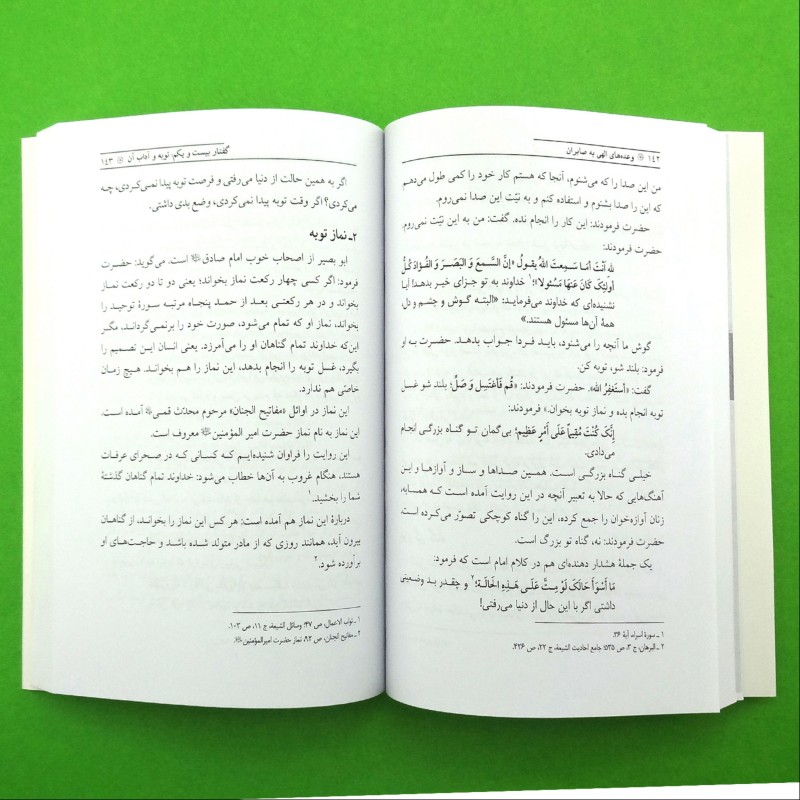 ۱۴۲ ※ وعده‌های الهی به صابران
من این صدا را که می‌شنوم، آنجا که هستم کار خود را کمی طول می‌دهم
که این را صدا بشنوم و استفاده کنم و به نیّت این صدا نمی‌روم.
حضرت فرمودند: این کار را انجام نده. گفت: من به این نیّت نمی‌روم.
حضرت فرمودند:
لله أنتَ أما سَمِعتَ اللهُ یقولُ «إنَّ السَّمعَ وَ البَصَرَ وَ الفُؤادَ کُلُّ
أولئِکَ کانَ عَنهَا مَسئُولا»؛۱ خداوند به تو جزای خیر بدهد! آیا
نشنیده‌ای که خداوند می‌فرماید: «البته گوش و چشم و دل،
همهٔ آن‌ها مسئول هستند.»
گوش ما آنچه را می‌شنود، باید فردا جواب بدهد. حضرت به او
فرمود: بلند شو، توبه کن.
گفت: «أستَغفِرُ الله». حضرت فرمودند: «قُم فَاغتَسِل وَ صَلِّ؛ بلند شو غسل
توبه انجام بده و نماز توبه بخوان.» فرمودند:
إنَّکَ کُنتَ مُقیماً عَلَی أمْرٍ عَظِیمٍ؛ بی‌گمان تو گناه بزرگی انجام
می‌دادی.
خیلی گناه بزرگی است. همین صداها و ساز و آوازها و این
آهنگ‌هایی که حالا به تعبیر آنچه در این روایت آمده است که همسایه،
زنان آوازه‌خوان را جمع کرده، این را گناه کوچکی تصوّر می‌کرده است.
حضرت فرمودند: نه، گناه تو بزرگ است.
یک جملهٔ هشدار دهنده‌ای هم در کلام امام است که فرمود:
مَا أسْوَأ حَالَکَ لَوْ مِتَّ عَلَی هَذِهِ الحَالَة؛۲ و چقدر بد وضعیتی
داشتی اگر با این حال از دنیا می‌رفتی!
۱ ـ سورهٔ اسراء، آیهٔ ۳۶.
۲ ـ البرهان، ج ۳، ص ۵۳۵؛ جامع احادیث الشیعة، ج ۲۲، ص ۴۲۶.
گفتار بیست و یکم: توبه و آداب آن ※ ۱۴۳
اگر به همین حالت از دنیا می‌رفتی و فرصت توبه پیدا نمی‌کردی، چه
می‌کردی؟ اگر وقت توبه پیدا نمی‌کردی، وضع بدی داشتی.
۲ـ نماز توبه
ابو بصیر از اصحاب خوب امام صادق است. می‌گوید: حضرت
فرمود: اگر کسی چهار رکعت نماز بخواند؛ یعنی دو تا دو رکعت نماز
بخواند و در هر رکعتی بعد از حمد پنجاه مرتبه سورهٔ توحید را
بخواند، نماز او که تمام می‌شود، صورت خود را برنمی‌گرداند، مگر
این‌که خداوند تمام گناهان او را می‌آمرزد. یعنی انسان این تصمیم را
بگیرد، غسل توبه را انجام بدهد، این نماز را هم بخواند. هیچ زمان
خاصّی هم ندارد.
این نماز در اوائل «مفاتیح الجنان» مرحوم محدّث قمی آمده است.
این نماز به نام نماز حضرت امیر المؤمنین معروف است.
این روایت را فراوان شنیده‌ایم که کسانی که در صحرای عرفات
هستند، هنگام غروب به آن‌ها خطاب می‌شود: خداوند تمام گناهان گذشتهٔ
شما را بخشید.۱
دربارهٔ این نماز هم آمده است: هر کس این نماز را بخواند، از گناهان
بیرون آید، همانند روزی که از مادر متولد شده باشد و حاجت‌های او
برآورده شود.۲
۱ ـ ثواب الاعمال، ص ۴۷؛ وسائل الشیعة، ج ۱۱، ص ۱۰۳.
۲ ـ مفاتیح الجنان، ص ۹۲، نماز حضرت امیرالمؤمنین.